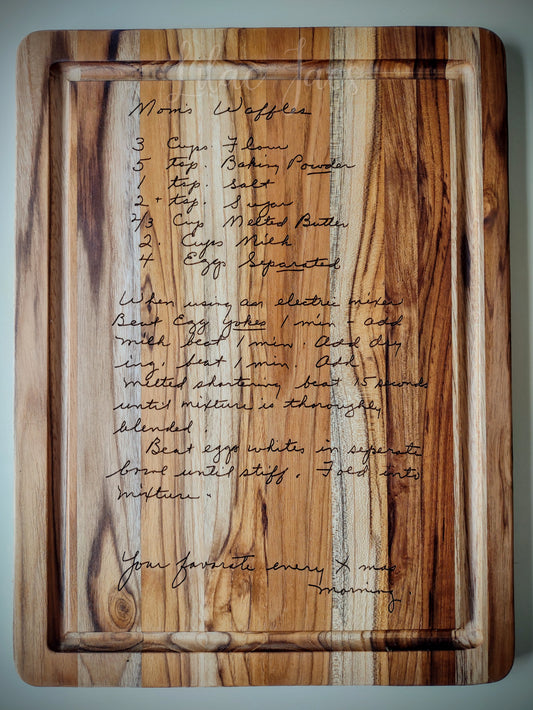 Lilac Jack
Mom's Waffles
3 Cups Flour
5 tsp. Baking Powder
1 tsp. Salt
2 + tsp. Sugar
2/3 Cup Melted Butter
2. Cups Milk
4 Eggs Separated
When using an electric mixer
Beat Egg yokes 1 min - add
milk beat 1 min. Add dry
ing. beat 1 min. Add
melted shortening beat 15 seconds
until mixture is thoroughly
blended.
Beat eggs whites in seperate
bowl until stiff. Fold into
mixture.
Your favorite every X mas
morning.